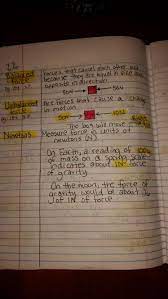 Balanced Force
Forces that cancel each other out
because they are equal in size and
opposite in direction.
50N 50N
Unbalanced Force
Are forces that cause a change
in motion.
The box will move
Newtons
Measure force in units of
newtons (N).
On Earth, a reading of
of mass on a spring scale
indicates about 1N of force
of gravity.
On the moon, the force of
gravity would be about
of 1N of force